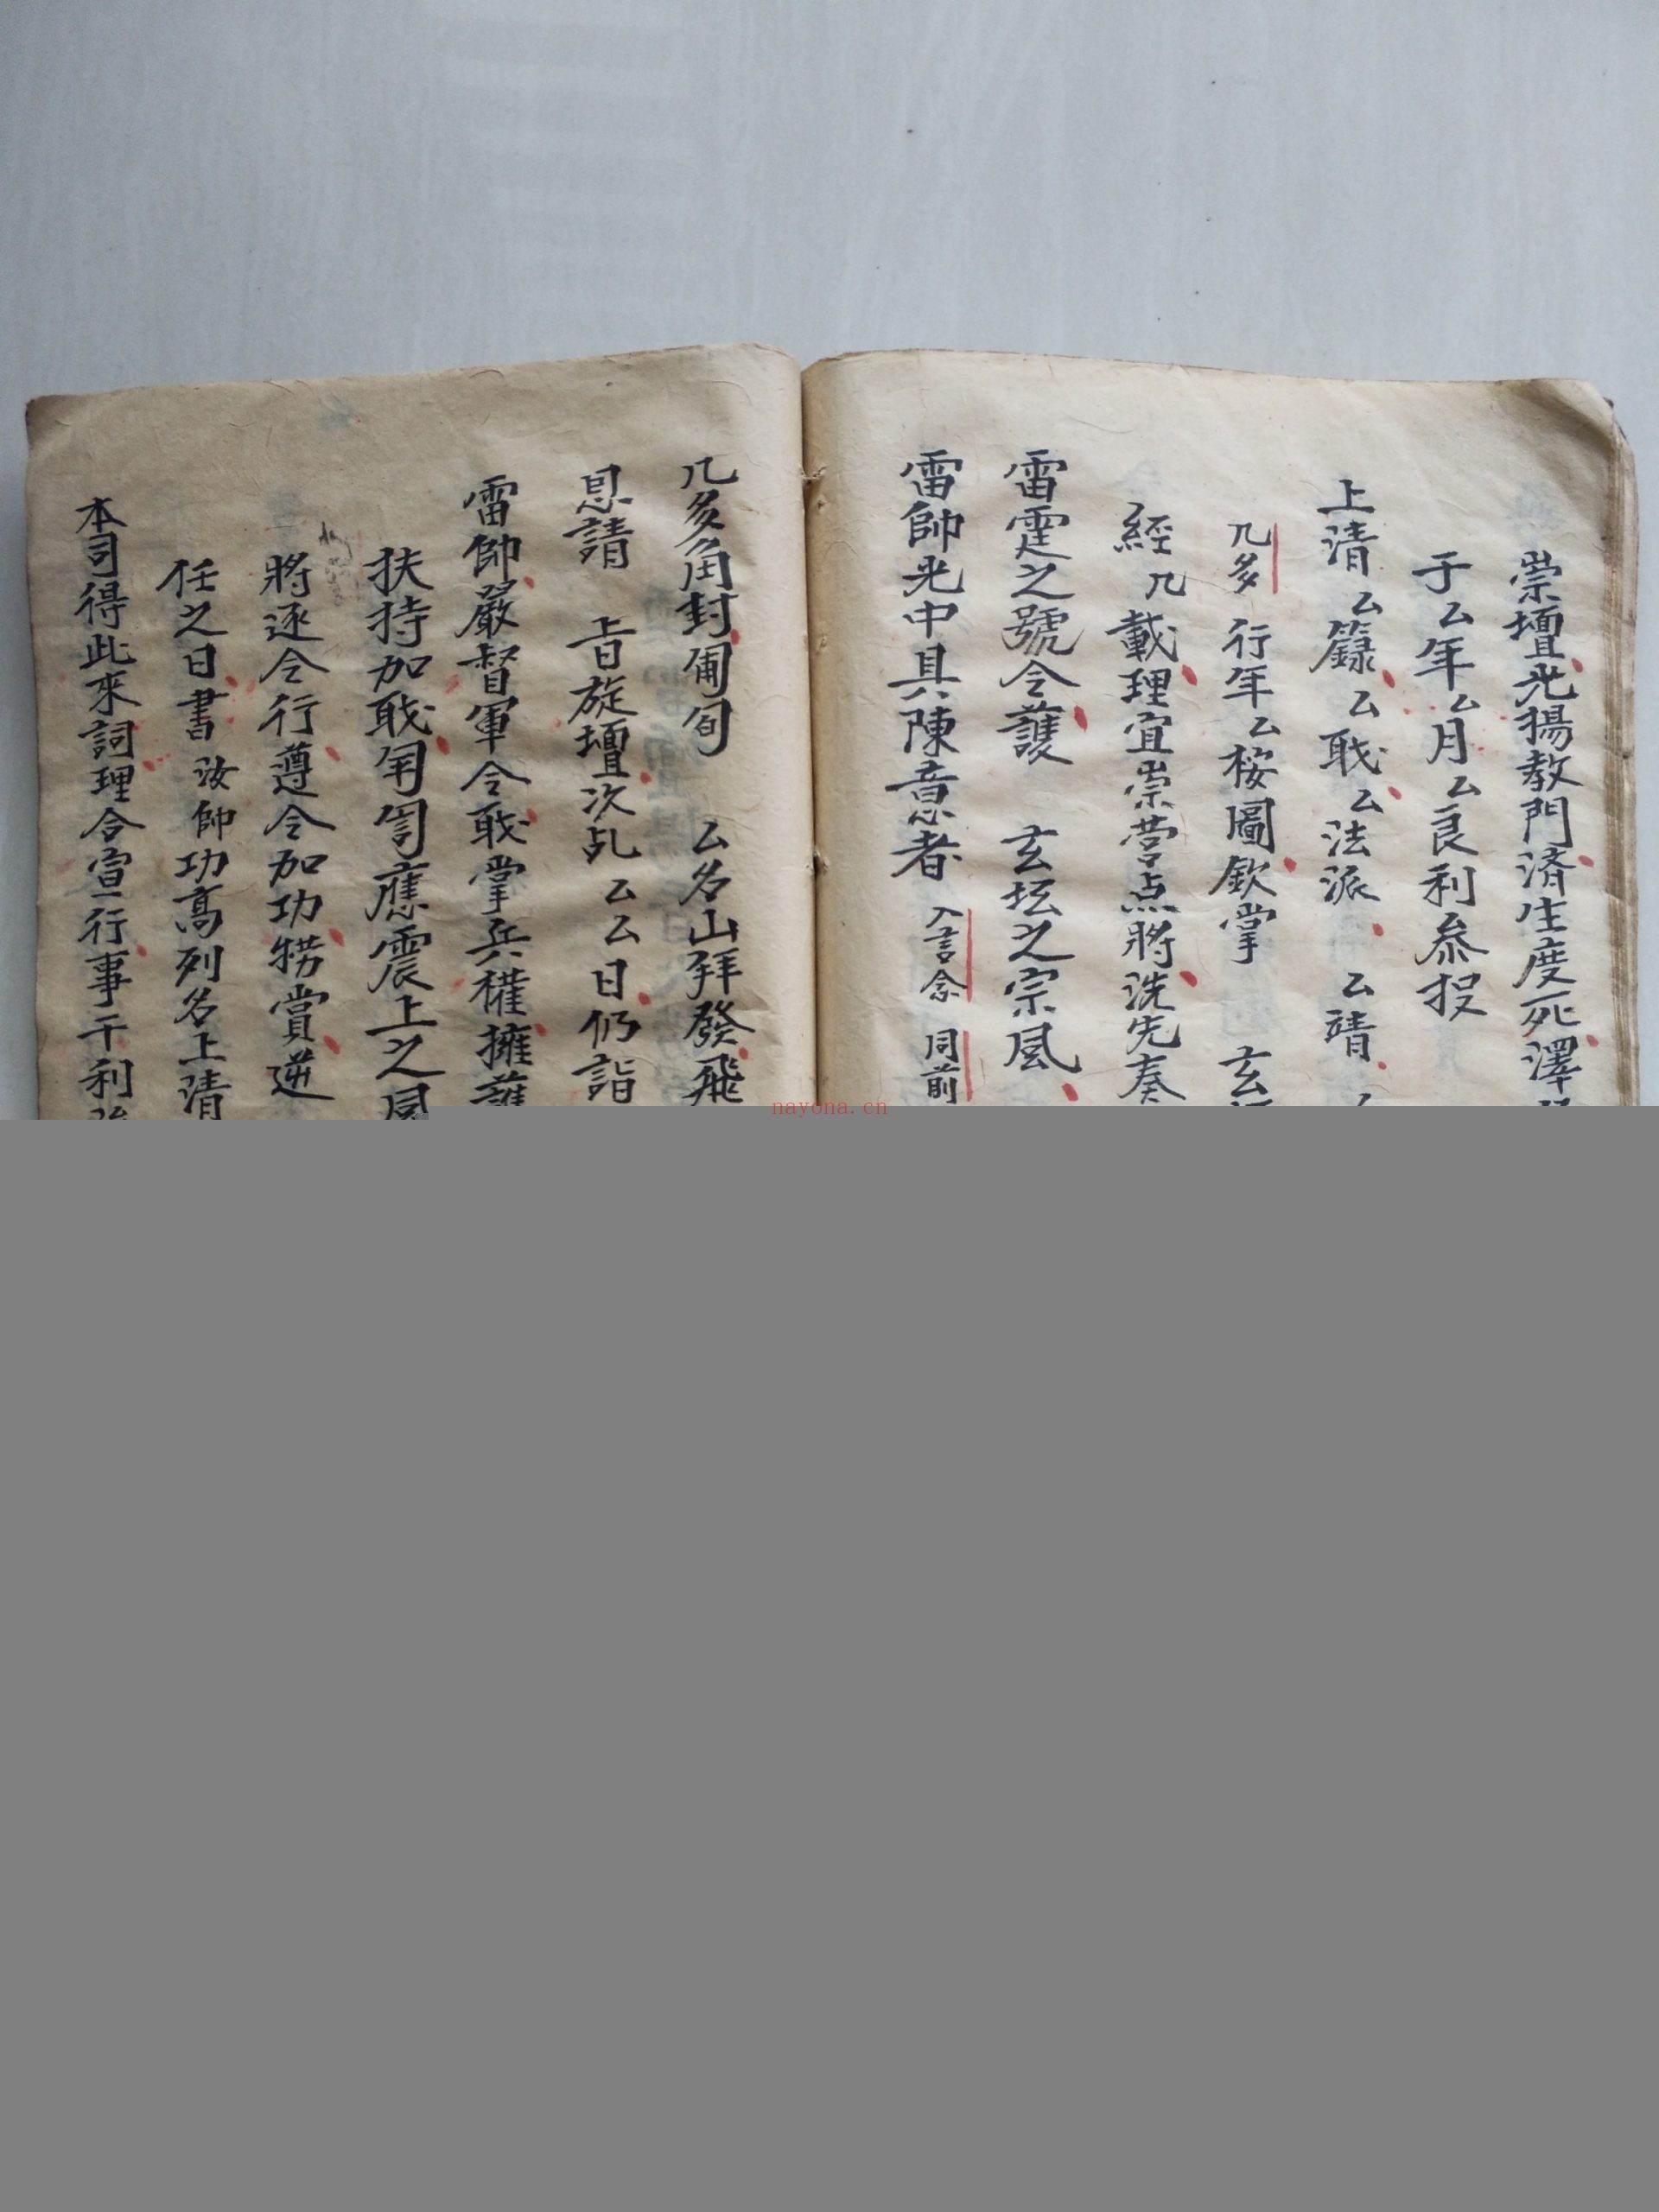 崇壇光揚教門済生度死澤
于厶年厶月厶良利叅投
上清厶籙厶戝厶法派 厶靖
几多 行年厶桉圖欽掌 玄
經几 載理宜崇营点將洗先奏
雷霆之號令護 玄坛之宗風
雷帥光中具陳意者 入言念 同前
几多角封 匍匐 厶名山拜發飛
恩請 旨旋壇次乩 厶厶日仍詣
雷帥嚴督軍令戝掌兵權擁護
扶持加戝 應震上之風
將逐令行遵令加功犒賞逆
任之日書 汝帥功高列名上清
本司得此來詞理合宣行事干利
nayona.cn